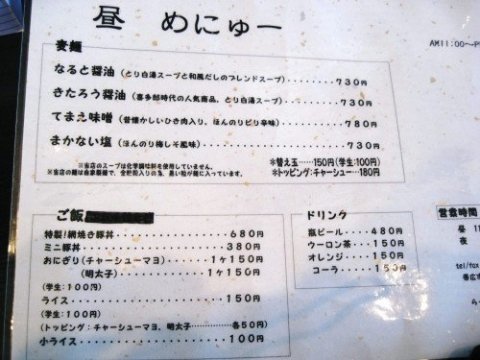 昼 めにゅー
AM11:00~P
麦麺
なると醤油(とり白湯スープと和風だしのブレンドスープ)・・・・・・・・・730円
きたろう醤油(喜多郎時代の人気商品、とり白湯スープ)・・・・・・・・・730円
てまえ味噌(昔懐かしいひき肉入り、ほんのりピリ辛味)・・・・・・・・・780円
まかない塩(ほんのり梅しそ風味)・・・・・・・・・730円
*当店のスープは化学調味料を使用していません。
*当店の麺は自家製麺で、全粒粉入りの為、黒い粒が麺に入っています。
*替え玉……150円(学生:100円)
*トッピング:チャーシュー…180円
ご飯
特製!網焼き豚丼・・・・・・・・・680円
ミニ豚丼・・・・・・・・・380円
おにぎり(チャーシューマヨ)・・・1ヶ150円
(明太子)・・・・・・・・・1ヶ150円
(学生:100円)
ライス・・・・・・・・・150円
(学生:100円)
(トッピング:チャーシューマヨ、明太子………各50円)
小ライス・・・・・・・・・100円
ドリンク
瓶ビール・・・・480円
ウーロン茶・・・150円
オレンジ・・・・150円
コーラ・・・・150円
営業時間
昼 11
夜
tel/fax
帯広市
ら